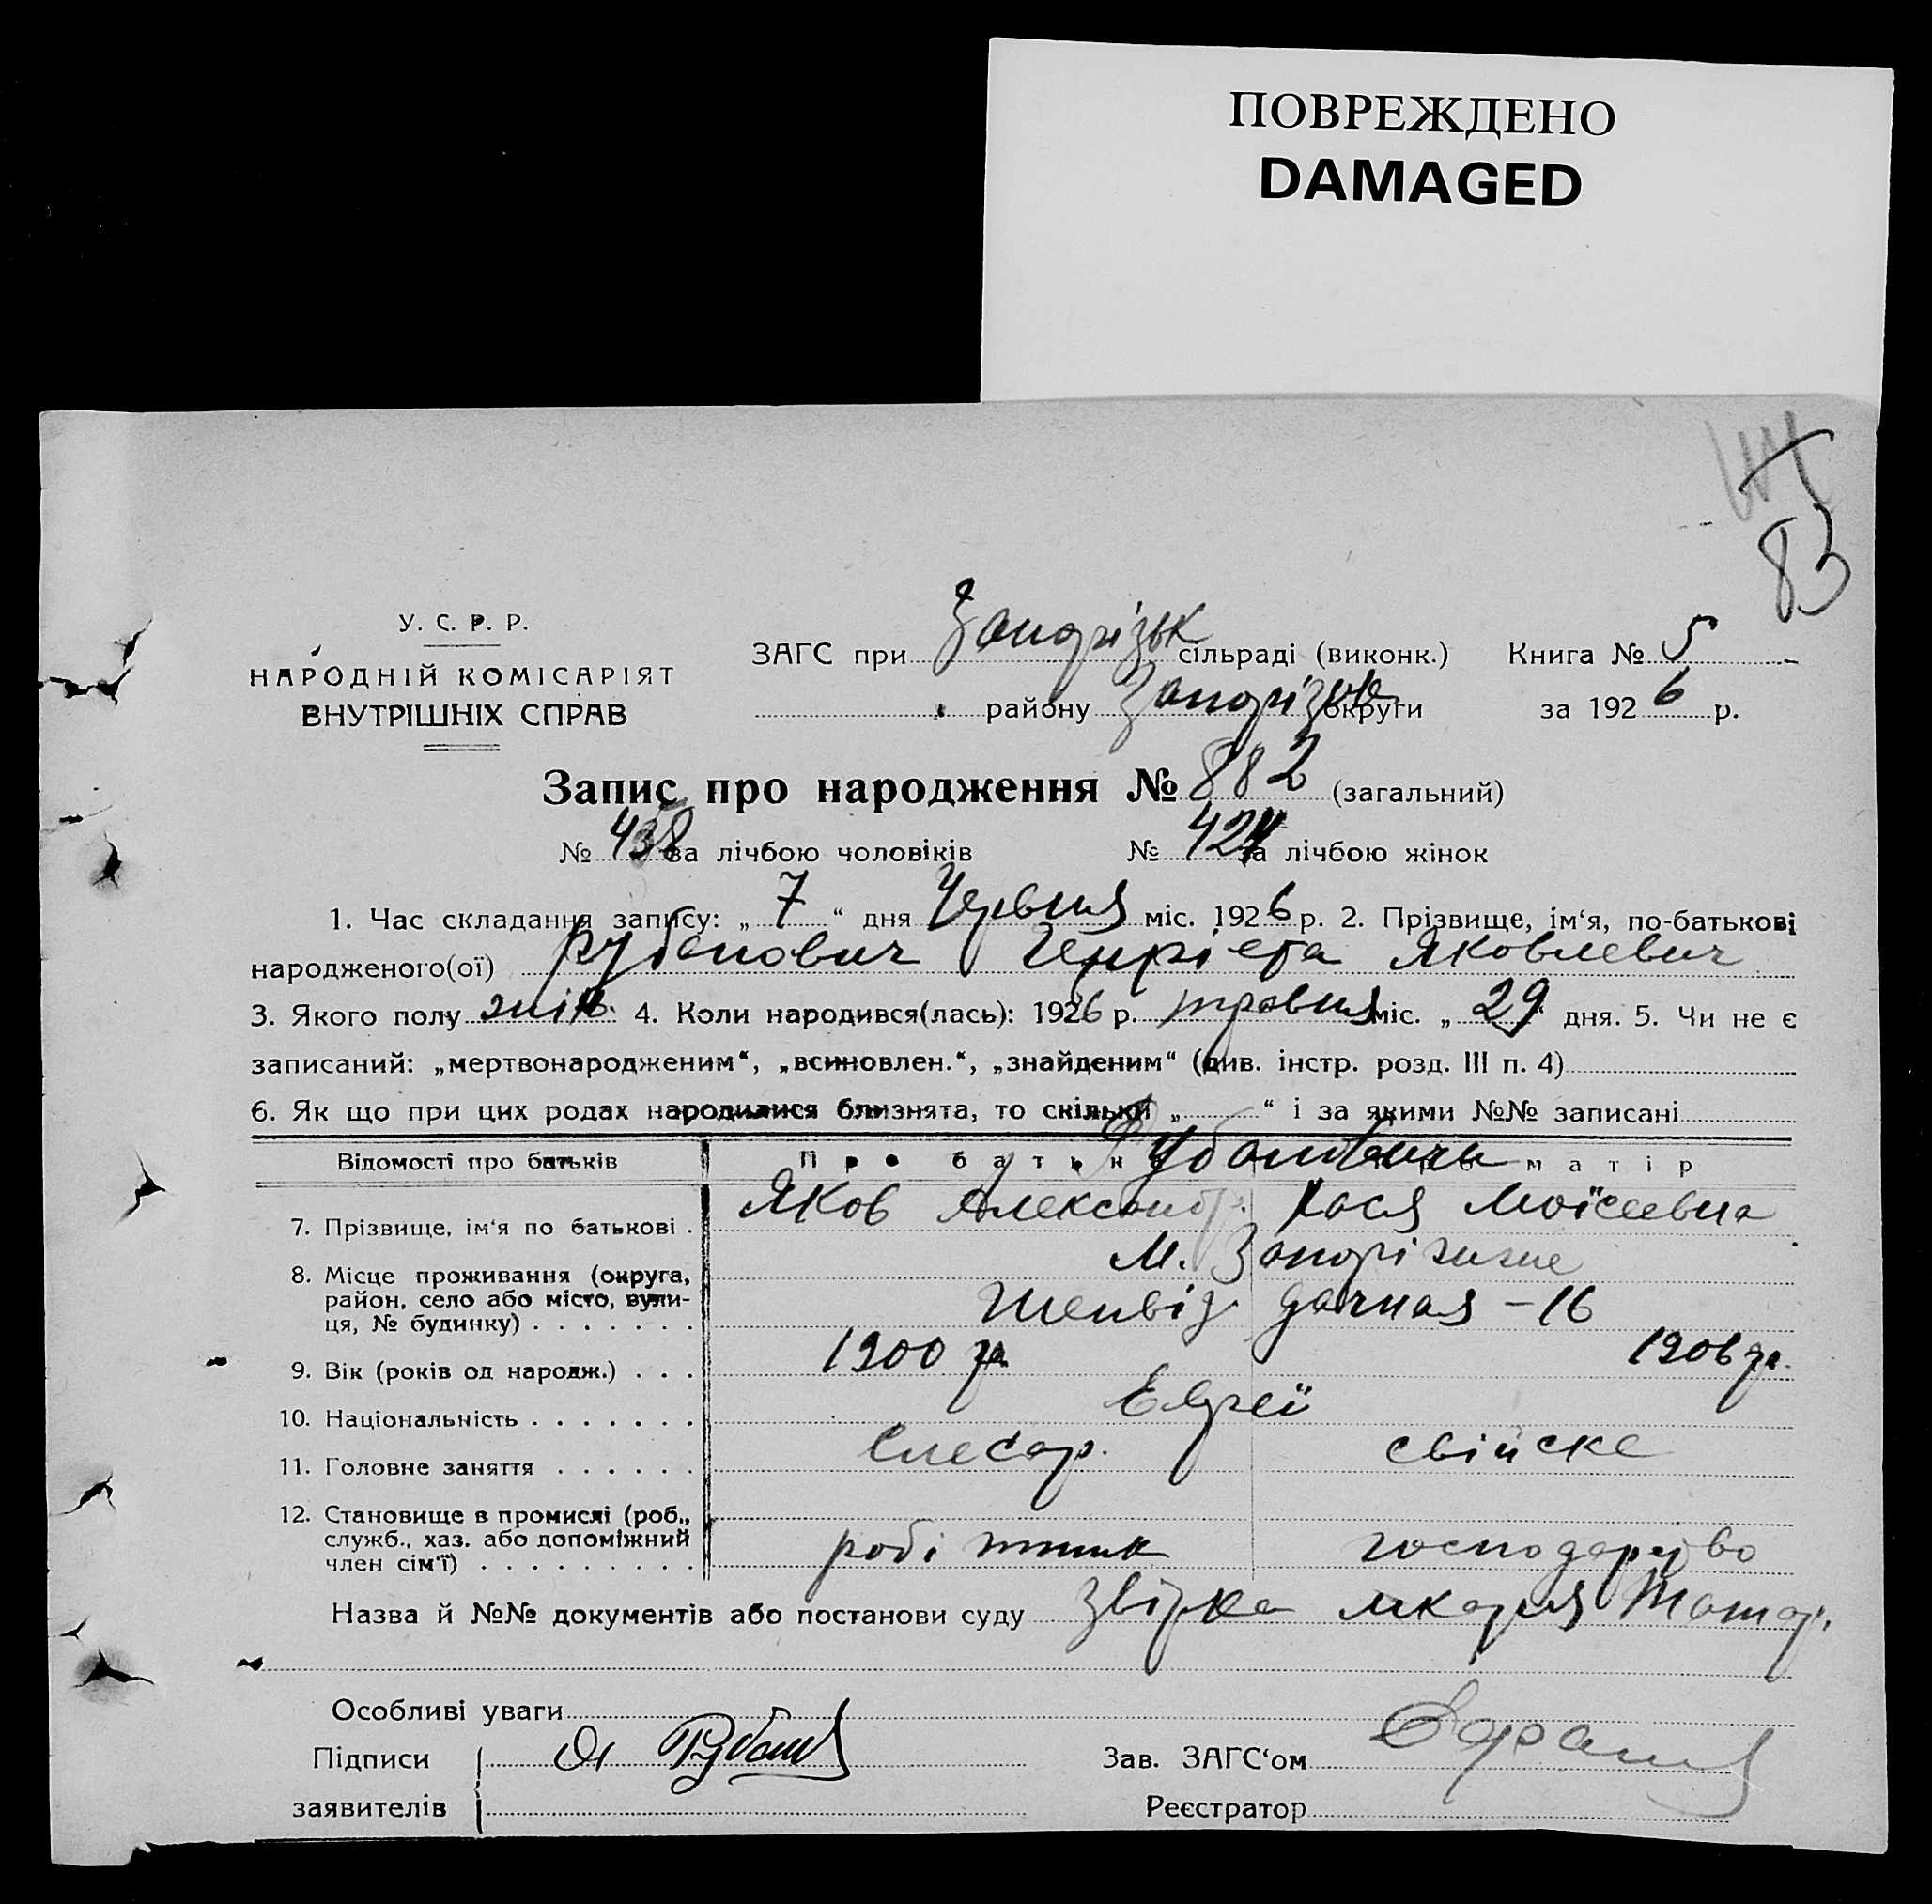 ПОВРЕЖДЕНО
DAMAGED
83
У. С. Р. Р.
НАРОДНІЙ КОМІСАРІЯТ
ВНУТРІШНІХ СПРАВ
ЗАГС при Запорізьк сільраді (виконк.) Книга № 5
району Запорізьк округи за 1926 р.
Запис про народження № 882 (загальний)
№ 458 за лічбою чоловіків № 424 за лічбою жінок
1. Час складання запису: „ 7 “ дня Червня міс. 1926 р. 2. Прізвище, ім‘я, по-батькові
народженого(ої) Рубанович Генрієта Яковлевич
3. Якого полу жін. 4. Коли народився(лась): 1926 р. травня міс. „ 29 “ дня. 5. Чи не є
записаний: „мертвонародженим“, „всиновлен.“, „знайденим“ (див. інстр. розд. III п. 4)
6. Як що при цих родах народилися близнята, то скільки „ “ і за якими №№ записані
Відомості про батьків Про батька Рубановичи Про матір
7. Прізвище, ім‘я по батькові . Яков Александр. Хася Моїсеевна
8. Місце проживання (округа, район, село або місто, вули-ця, № будинку) . . . . . . . М. Запоріжжє
дачная – 16
9. Вік (років од народж.) . . . 1900 р. 1906 р.
10. Національність . . . . . . . Евреї
11. Головне заняття . . . . . . Слесар. свійске
12. Становище в промислі (роб., служб., хаз. або допоміжний член сім‘ї) . . . . . . . . . робітник господарство
Назва й №№ документів або постанови суду лікарня
Особливі уваги
Підписи Я Рубан
заявителів
Зав. ЗАГС‘ом
Реєстратор